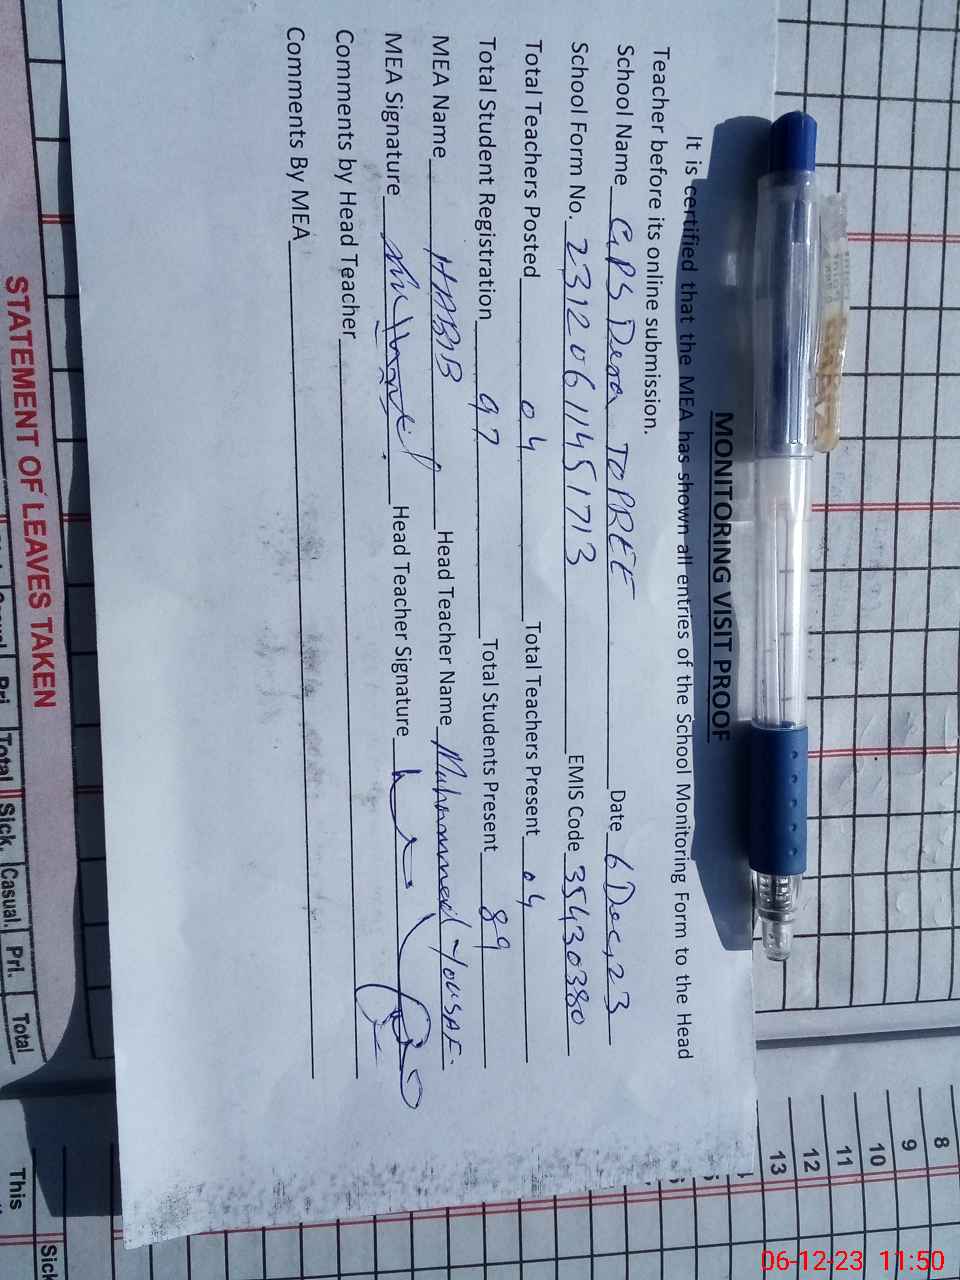 MONITORING VISIT PROOF
It is certified that the MEA has shown all entries of the School Monitoring Form to the Head
Teacher before its online submission.
School Name GPS Dera TOPREE Date 6 Dec, 23
School Form No. 23120611451713 EMIS Code 35430380
Total Teachers Posted 04 Total Teachers Present 04
Total Student Registration 97 Total Students Present 89
MEA Name HABIB Head Teacher Name Muhammad YOUSAF.
MEA Signature Head Teacher Signature
Comments by Head Teacher
Comments By MEA
STATEMENT OF LEAVES TAKEN
Pri. Total Sick. Casual. Pri. Total
This
Sick
8
9
10
11
12
13
06-12-23 11:50